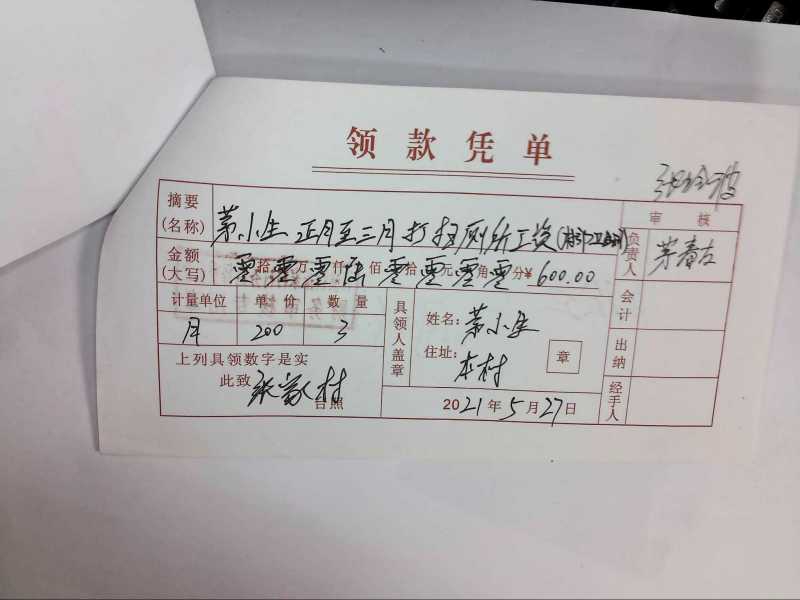 领款凭单
摘要(名称) 茅小生 正月至三月打扫厕所工资
审核
金额(大写) 零拾零万零仟陆佰零拾零元零角零分¥600.00
负责人 茅春左
计量单位 单价 数量
月 200 3
具领人盖章
姓名:茅小生
住址:本村
章
会计
出纳
经手人
上列具领数字是实
此致 张家村
台照
2021年5月27日